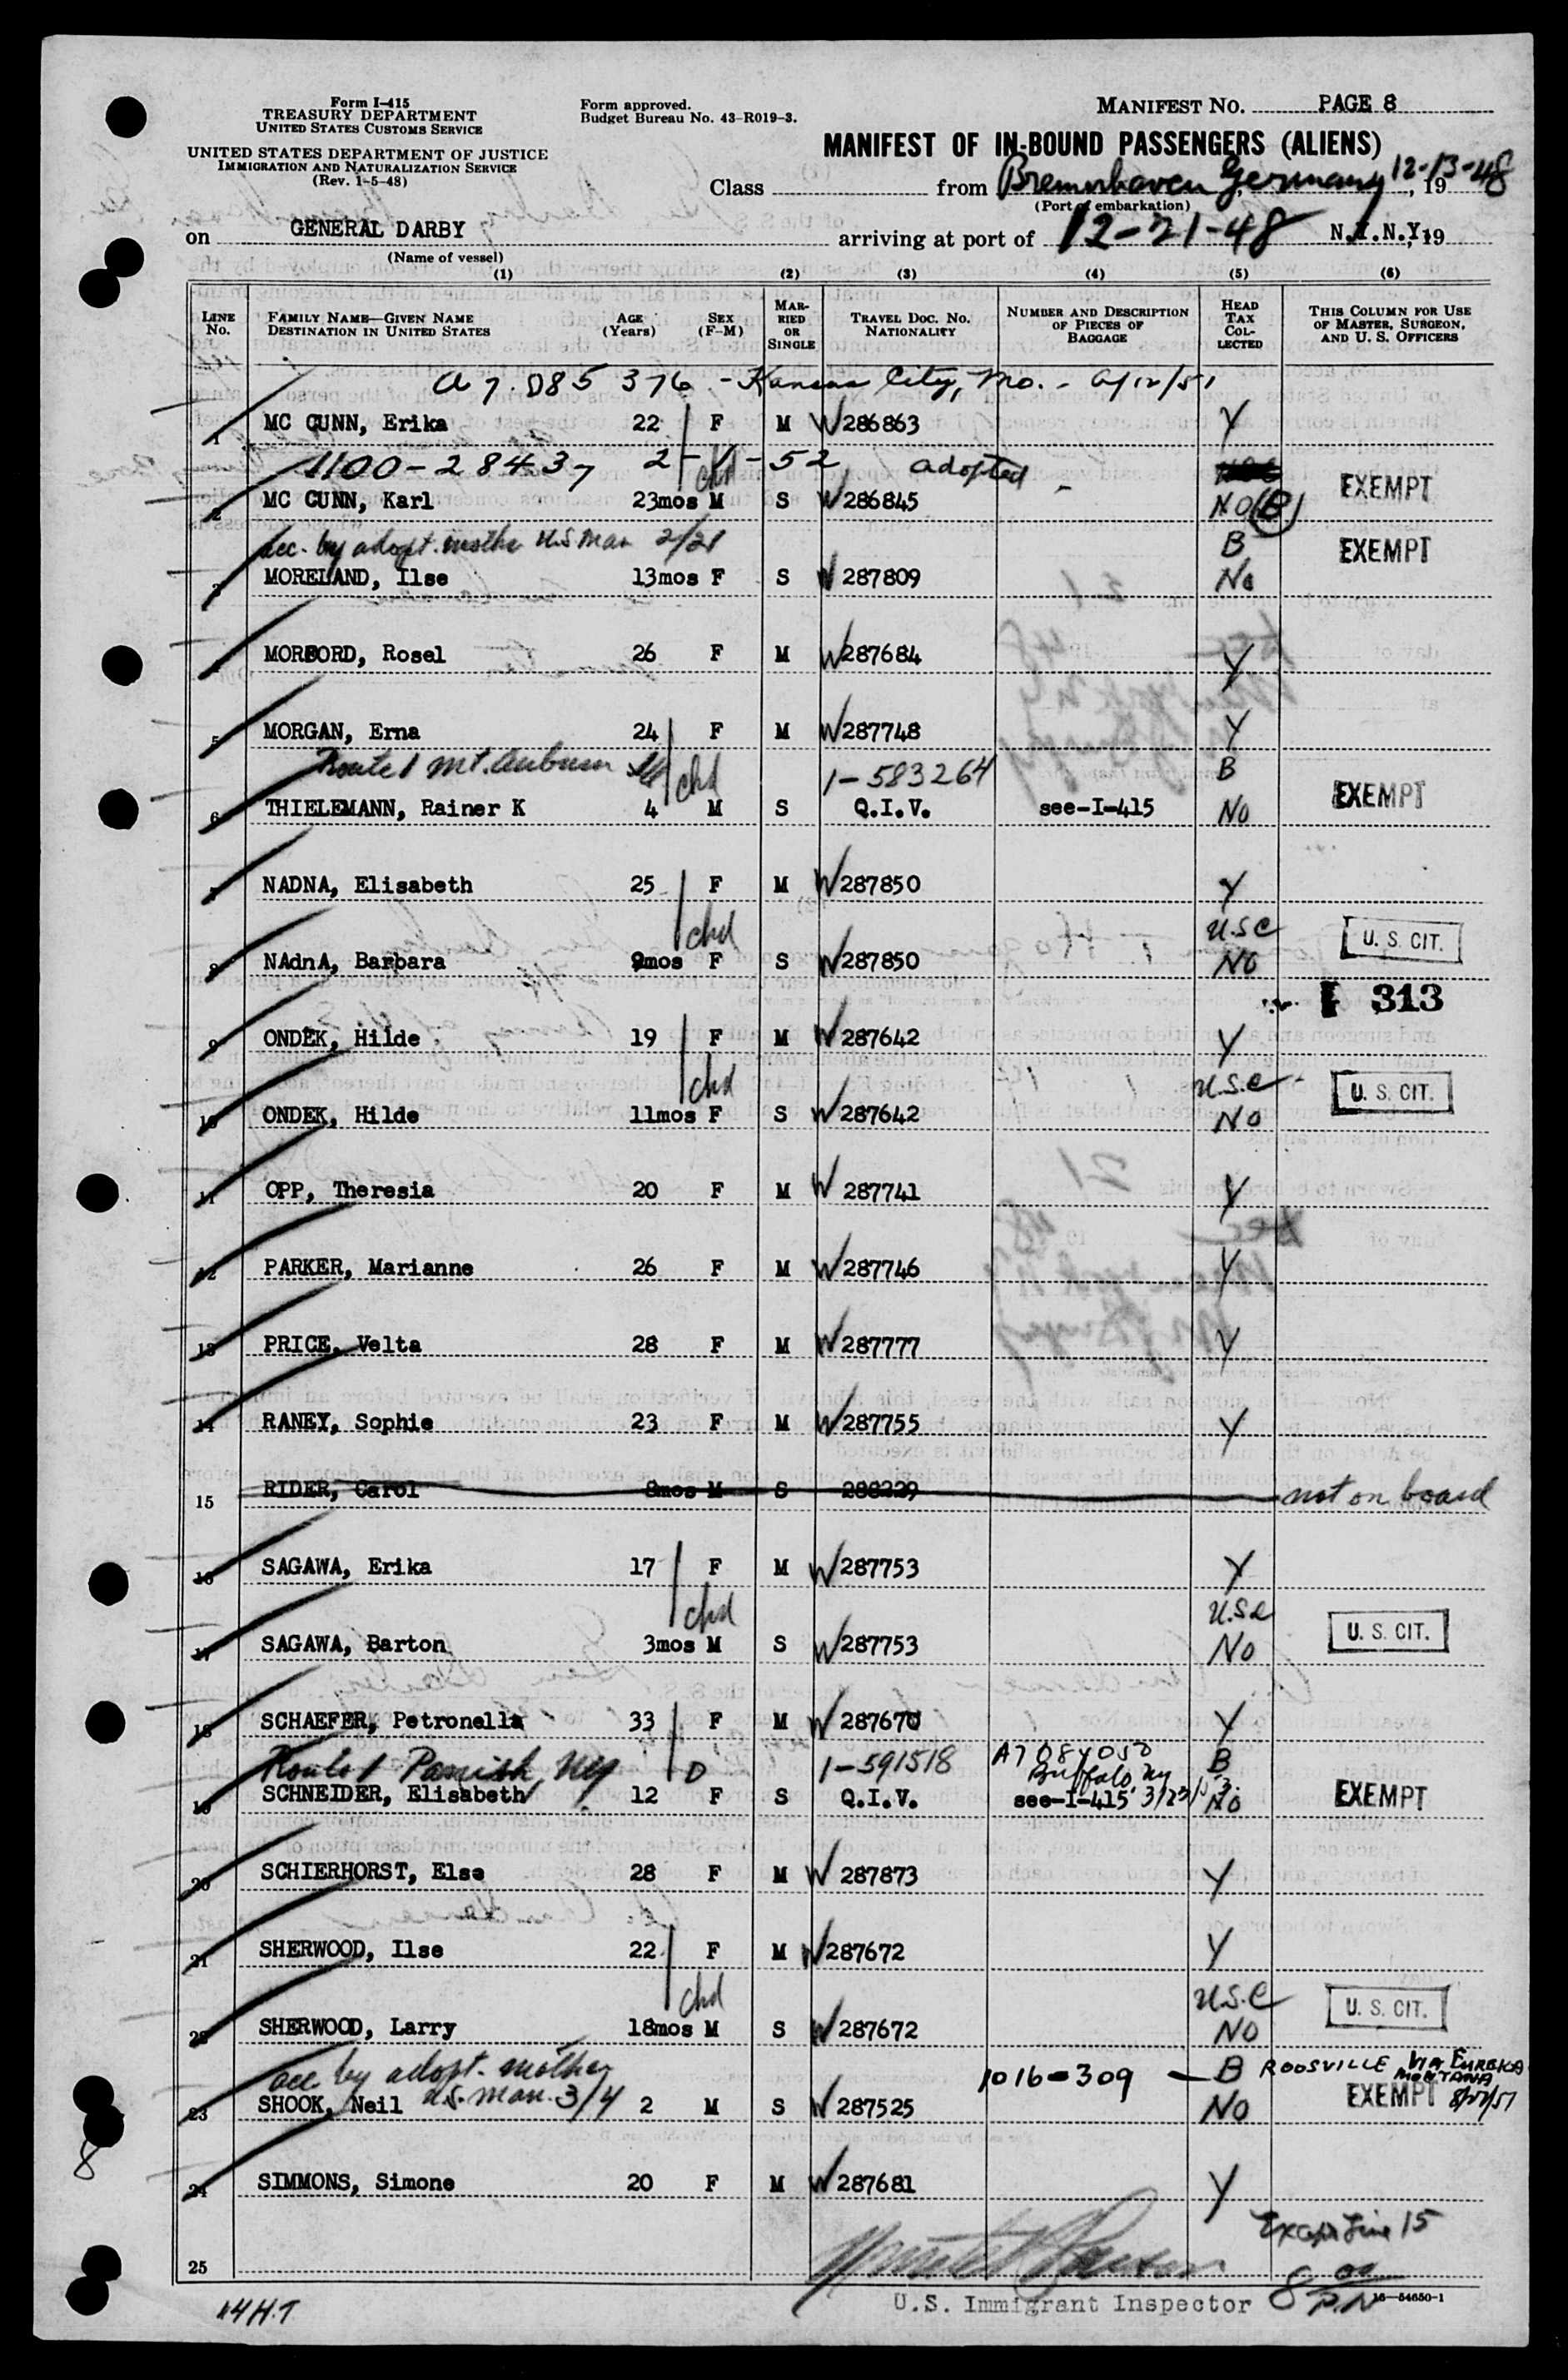 Form I-415
TREASURY DEPARTMENT
UNITED STATES CUSTOMS SERVICE
UNITED STATES DEPARTMENT OF JUSTICE
IMMIGRATION AND NATURALIZATION SERVICE
(Rev. 1-5-48)
Form approved.
Budget Bureau No. 43-R019-3.
MANIFEST NO. PAGE 8
MANIFEST OF IN-BOUND PASSENGERS (ALIENS)
Class from Bremerhaven Germany 12-13-48, 19
(Port of embarkation)
on GENERAL DARBY arriving at port of 12-21-48 N.Y.N.Y, 19
(Name of vessel)
(1) (2) (3) (4) (5) (6)
LINE No. FAMILY NAME—GIVEN NAME DESTINATION IN UNITED STATES AGE (Years) SEX (F-M) MARRIED OR SINGLE TRAVEL DOC. NO. NATIONALITY NUMBER AND DESCRIPTION OF PIECES OF BAGGAGE HEAD TAX COLLECTED THIS COLUMN FOR USE OF MASTER, SURGEON, AND U. S. OFFICERS
a 7.085 376 - Kansas City, Mo. - 9/12/51
1 MC GUNN, Erika 22 F M W 286863 Y
1100-28437 2-1-52 adopted
chd
2 MC GUNN, Karl 23mos M S W 286845 NO (B) EXEMPT
acc. by adopt. mothe U.S Man 2/21 B EXEMPT
3 MORELAND, Ilse 13mos F S W 287809 No
4 MORFORD, Rosel 26 F M W 287684 Y
5 MORGAN, Erna 24 F M W 287748 Y
Route 1 Mt. Auburn chd 1-583264 B
6 THIELEMANN, Rainer K 4 M S Q.I.V. see-I-415 No EXEMPT
7 NADNA, Elisabeth 25 F M W 287850 Y
chd U.S.C U. S. CIT.
8 NAdnA, Barbara 9mos F S W 287850 NO
313
9 ONDEK, Hilde 19 F M W 287642 Y
chd U.S.C U. S. CIT.
10 ONDEK, Hilde 11mos F S W 287642 NO
11 OPP, Theresia 20 F M W 287741 Y
12 PARKER, Marianne 26 F M W 287746 Y
13 PRICE, Velta 28 F M W 287777 Y
14 RANEY, Sophie 23 F M W 287755 Y
15 RIDER, Carol 8mos M S 288229 not on board
16 SAGAWA, Erika 17 F M W 287753 Y
chd U.S.C U. S. CIT.
17 SAGAWA, Barton 3mos M S W 287753 No
18 SCHAEFER, Petronella 33 F M W 287670 Y
Route 1 Parish, NY D 1-591518 A7084050 Buffalo, NY B
19 SCHNEIDER, Elisabeth 12 F S Q.I.V. see-I-415 3/23/53 No EXEMPT
20 SCHIERHORST, Else 28 F M W 287873 Y
21 SHERWOOD, Ilse 22 F M W 287672 Y
chd U.S.C U. S. CIT.
22 SHERWOOD, Larry 18mos M S W 287672 NO
acc by adopt. mother U.S. Man. 3/4 1016-309 - B ROOSVILLE VIA EUREKA MONTANA
23 SHOOK, Neil 2 M S W 287525 NO EXEMPT 8/27/51
24 SIMMONS, Simone 20 F M W 287681 Y
Except Line 15
25
U.S. Immigrant Inspector
8 00 P.N
16—54650-1
44H.T
8